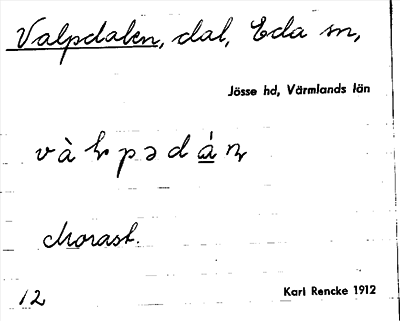 Valpdalen, dal, Eda sn,
Jösse hd, Värmlands län
Morast.
12
Karl Rencke 1912